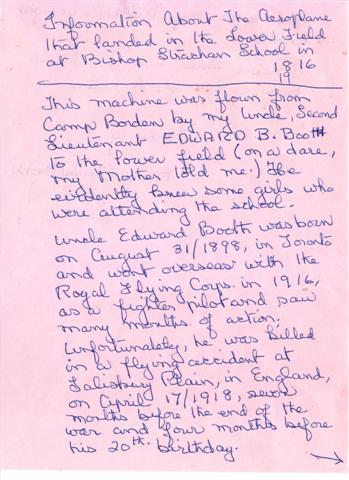 Information About The Aeroplane
that landed in the Lower Field
at Bishop Strachan School in
1816
19
This machine was flown from
Camp Borden by my Uncle, Second
Lieutenant EDWARD B. Booth
to the lower field (on a dare,
my Mother told me.) He
evidently knew some girls who
were attending the school.
Uncle Edward Booth was born
on August 31/1898, in Toronto
and went overseas with the
Royal Flying Corps. in 1916,
as a fighter pilot and saw
many months of action.
Unfortunately, he was killed
in a flying accident at
Salisbury Plain, in England,
on April 17/1918, seven
months before the end of the
war and four months before
his 20th birthday.